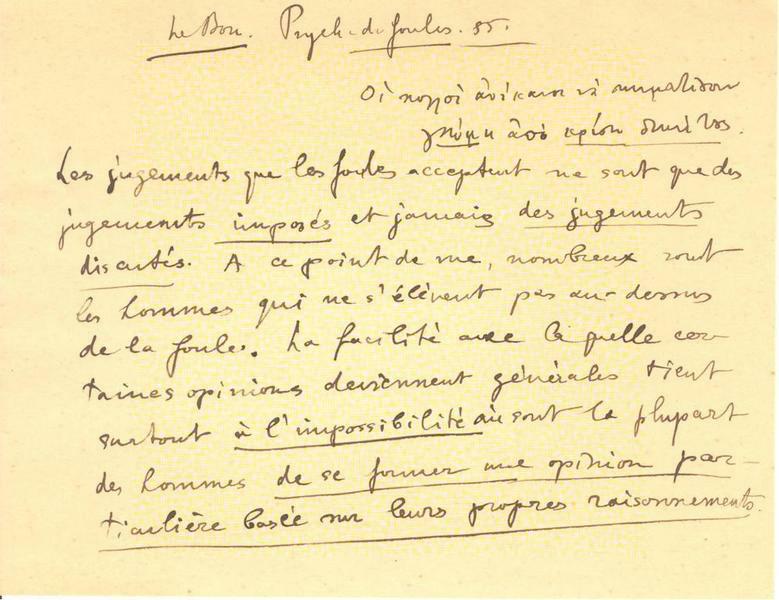 Le Bon. Psych. de foules. 55.
Οἱ πολλοὶ ἀνίκανοι νὰ σχηματίσουν
γνώμη ἀπὸ κρίση δική τους.
Les jugements que les foules acceptent ne sont que des
jugements imposés et jamais des jugements
discutés. A ce point de vue, nombreux sont
les hommes qui ne s'élèvent pas au-dessus
de la foule. La facilité avec laquelle cer-
taines opinions deviennent générales tient
surtout à l'impossibilité où sont la plupart
des hommes de se former une opinion par-
ticulière basée sur leurs propres raisonnements.